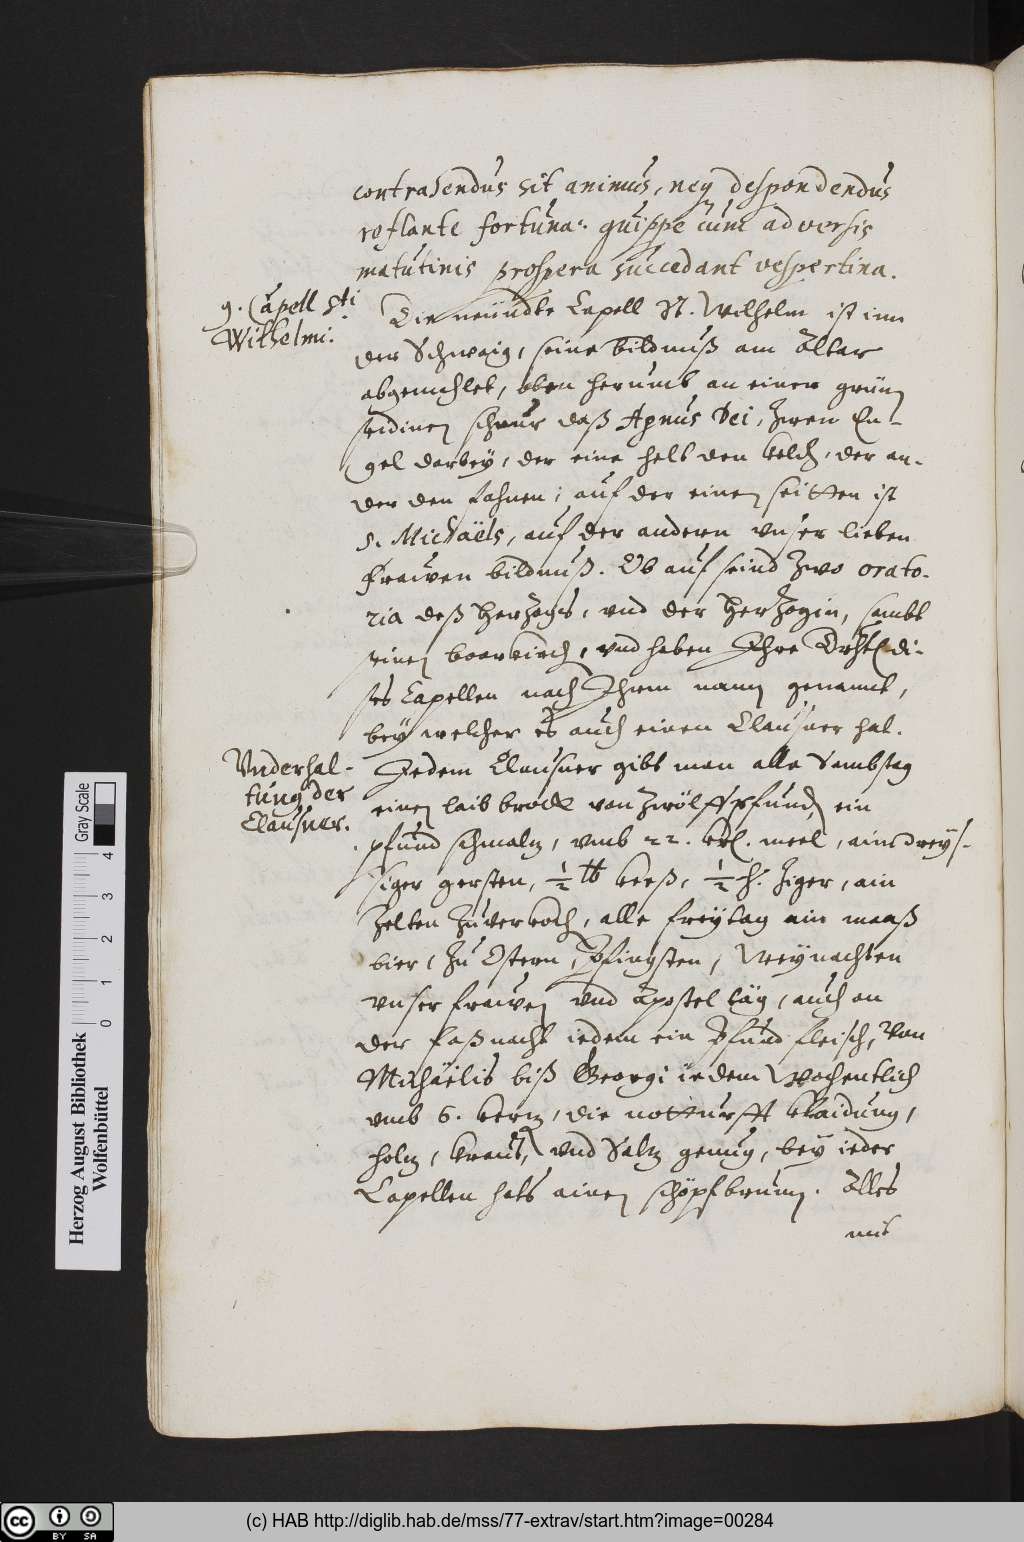 contrahendus sit animus, neq despondendus
reflante fortuna: quippe cum adversis
matutinis prospera succedant vespertina.
9. Capell Sti
Wilhelmi.
Die neündte Capell St. Wilhelm ist inn
der Schwaig, seine bildnuß am Altar
abgemahlet, oben herumb an einer grüen
seidinen schnur daß Agnus Dei, zwen En-
gel darbey, der eine helt den kelch, der an-
der den fahnen; auf der einen seitten ist
S. Michaëls, auf der andern vnser lieben
frawen bildnuß. Ob auf seind zwo orato-
ria deß Herzogs, vnd der Herzogin, sambt
einen boorkirch, vnd haben Ihre Drhtl di-
ses Capellen nach Ihrem namen genannt,
bey welcher es auch einen Clausner hat.
Vnderhal-
tung der
Clausner.
Jedem Clausner gibt man alle Sambstag
einen laib brodt von zwölff pfund, ein
pfund schmalz, vmb 22. meel, ain dreys-
siger gersten, ½ lb keeß, ½ Ziger, ain
Zelten Zuverkoch, alle freytag ain maaß
bier, zu Ostern, Pfingsten, Weynachten
vnser frawen vnd Apostel täg, auch an
der faßnacht iedem ein Pfund fleisch, Von
Michäelis biß Georgi iedem Wochentlich
vmb 6. kerz, die notturfft klaidung,
holz, kraut, vnd Salz genug, bey ieder
Capellen hats ainen schöpfbrunn. Alles
mit
Gray Scale
0 1 2 3 4
Herzog August Bibliothek
Wolfenbüttel
cc BY SA
(c) HAB http://diglib.hab.de/mss/77-extrav/start.htm?image=00284